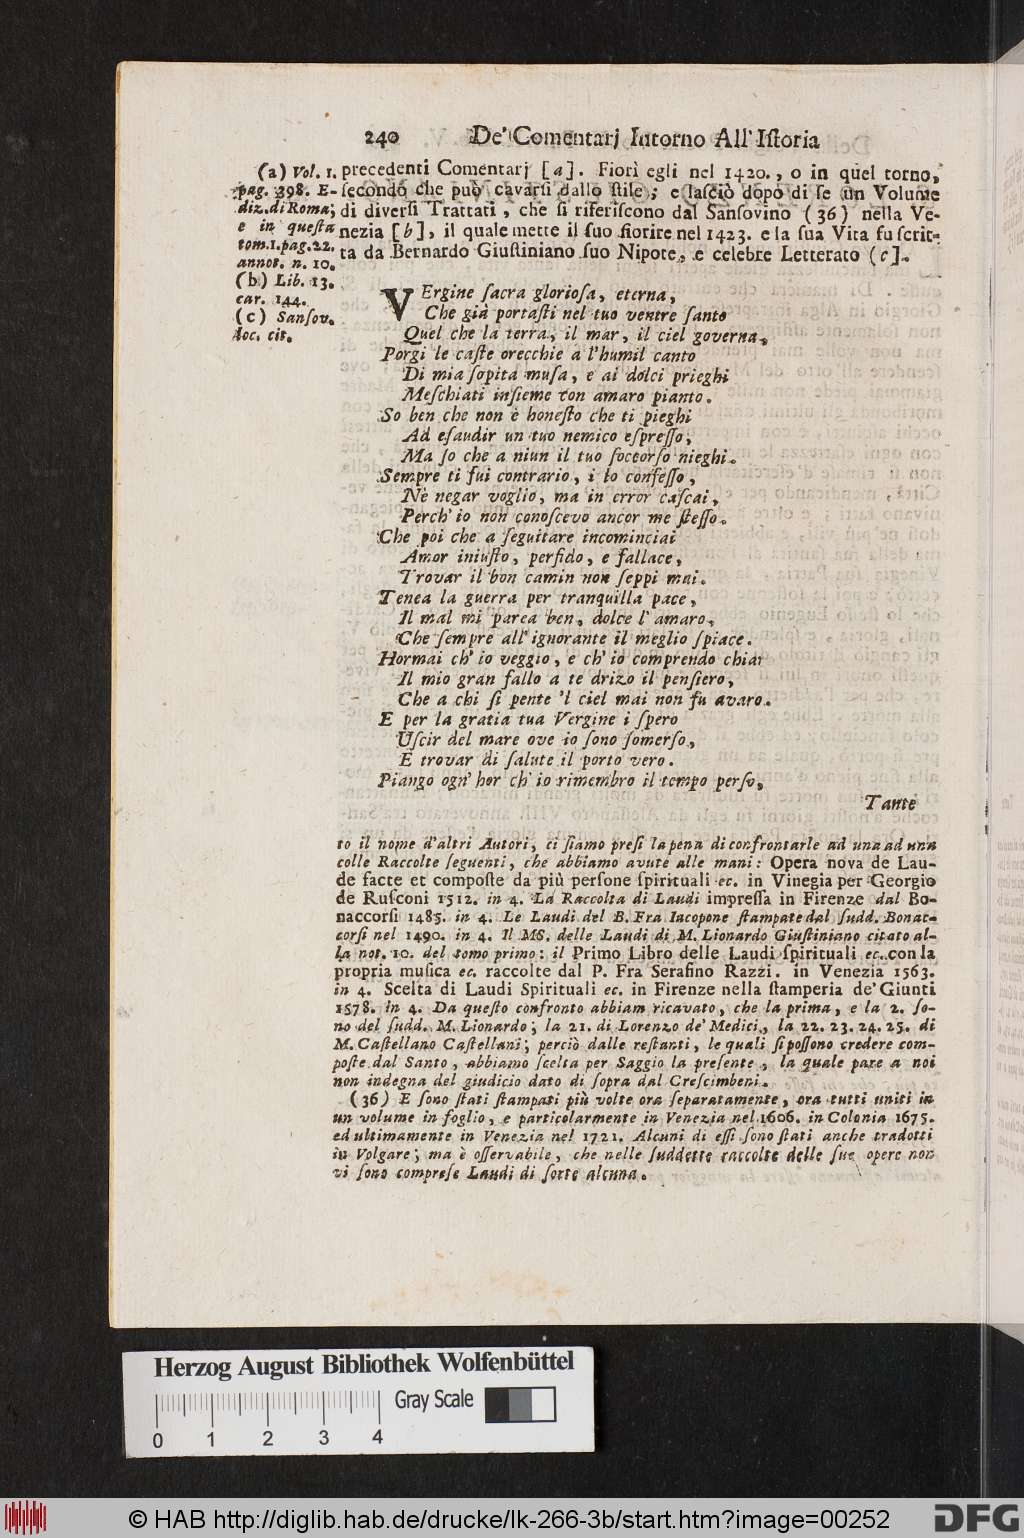 240 De' Comentarj Intorno All' Iſtoria
(a) Vol. 1.
pag. 398. E-
diz. di Roma;
e in queſta
tom. 1. pag. 22.
annot. n. 10.
(b) Lib. 13.
car. 144.
(c) Sanſov.
loc. cit.
precedenti Comentarj [a]. Fiorì egli nel 1420., o in quel torno,
ſecondo che può cavarſi dallo ſtile; e laſciò dopo di ſe un Volume
di diverſi Trattati, che ſi riferiſcono dal Sanſovino (36) nella Ve-
nezia [b], il quale mette il ſuo fiorire nel 1423. e la ſua Vita fu ſcrit-
ta da Bernardo Giuſtiniano ſuo Nipote, e celebre Letterato (c).
VErgine ſacra glorioſa, eterna,
Che già portaſti nel tuo ventre ſanto
Quel che la terra, il mar, il ciel governa,
Porgi le caſte orecchie a l'humil canto
Di mia ſopita muſa, e ai dolci prieghi
Meſchiati inſieme con amaro pianto.
So ben che non è honeſto che ti pieghi
Ad eſaudir un tuo nemico eſpreſſo,
Ma ſo che a niun il tuo ſoccorſo nieghi.
Sempre ti fui contrario, i lo confeſſo,
Nè negar voglio, ma in error caſcai,
Perch' io non conoſcevo ancor me ſteſſo.
Che poi che a ſeguitare incominciai
Amor iniuſto, perfido, e fallace,
Trovar il bon camin non ſeppi mai.
Tenea la guerra per tranquilla pace,
Il mal mi parea ben, dolce l' amaro,
Che ſempre all' ignorante il meglio ſpiace.
Hormai ch' io veggio, e ch' io comprendo chiar
Il mio gran fallo a te drizo il penſiero,
Che a chi ſi pente 'l ciel mai non fu avaro.
E per la gratia tua Vergine i ſpero
Uſcir del mare ove io ſono ſomerſo,
E trovar di ſalute il porto vero.
Piango ogn' hor ch' io rimembro il tempo perſo,
Tante
to il nome d'altri Autori, ci ſiamo preſi la pena di confrontarle ad una ad una
colle Raccolte ſeguenti, che abbiamo avute alle mani: Opera nova de Lau-
de facte et compoſte da più perſone ſpirituali ec. in Vinegia per Georgio
de Ruſconi 1512. in 4. La Raccolta di Laudi impreſſa in Firenze dal Bo-
naccorſi 1485. in 4. Le Laudi del B. Fra Iacopone ſtampate dal ſudd. Bonac-
corſi nel 1490. in 4. Il MS. delle Laudi di M. Lionardo Giuſtiniano citato al-
la not. 10. del tomo primo: il Primo Libro delle Laudi ſpirituali ec. con la
propria muſica ec. raccolte dal P. Fra Serafino Razzi. in Venezia 1563.
in 4. Scelta di Laudi Spirituali ec. in Firenze nella ſtamperia de' Giunti
1578. in 4. Da queſto confronto abbiam ricavato, che la prima, e la 2. ſo-
no del ſudd. M. Lionardo; la 21. di Lorenzo de' Medici, la 22. 23. 24. 25. di
M. Caſtellano Caſtellani; perciò dalle reſtanti, le quali ſi poſſono credere com-
poſte dal Santo, abbiamo ſcelta per Saggio la preſente, la quale pare a noi
non indegna del giudicio dato di ſopra dal Creſcimbeni.
(36) E ſono ſtati ſtampati più volte ora ſeparatamente, ora tutti uniti in
un volume in foglio, e particolarmente in Venezia nel 1606. in Colonia 1675.
ed ultimamente in Venezia nel 1721. Alcuni di eſſi ſono ſtati anche tradotti
in Volgare; ma è oſſervabile, che nelle ſuddette raccolte delle ſue opere non
vi ſono compreſe Laudi di ſorte alcuna.
Herzog August Bibliothek Wolfenbüttel
Gray Scale
0 1 2 3 4
© HAB http://diglib.hab.de/drucke/lk-266-3b/start.htm?image=00252
DFG